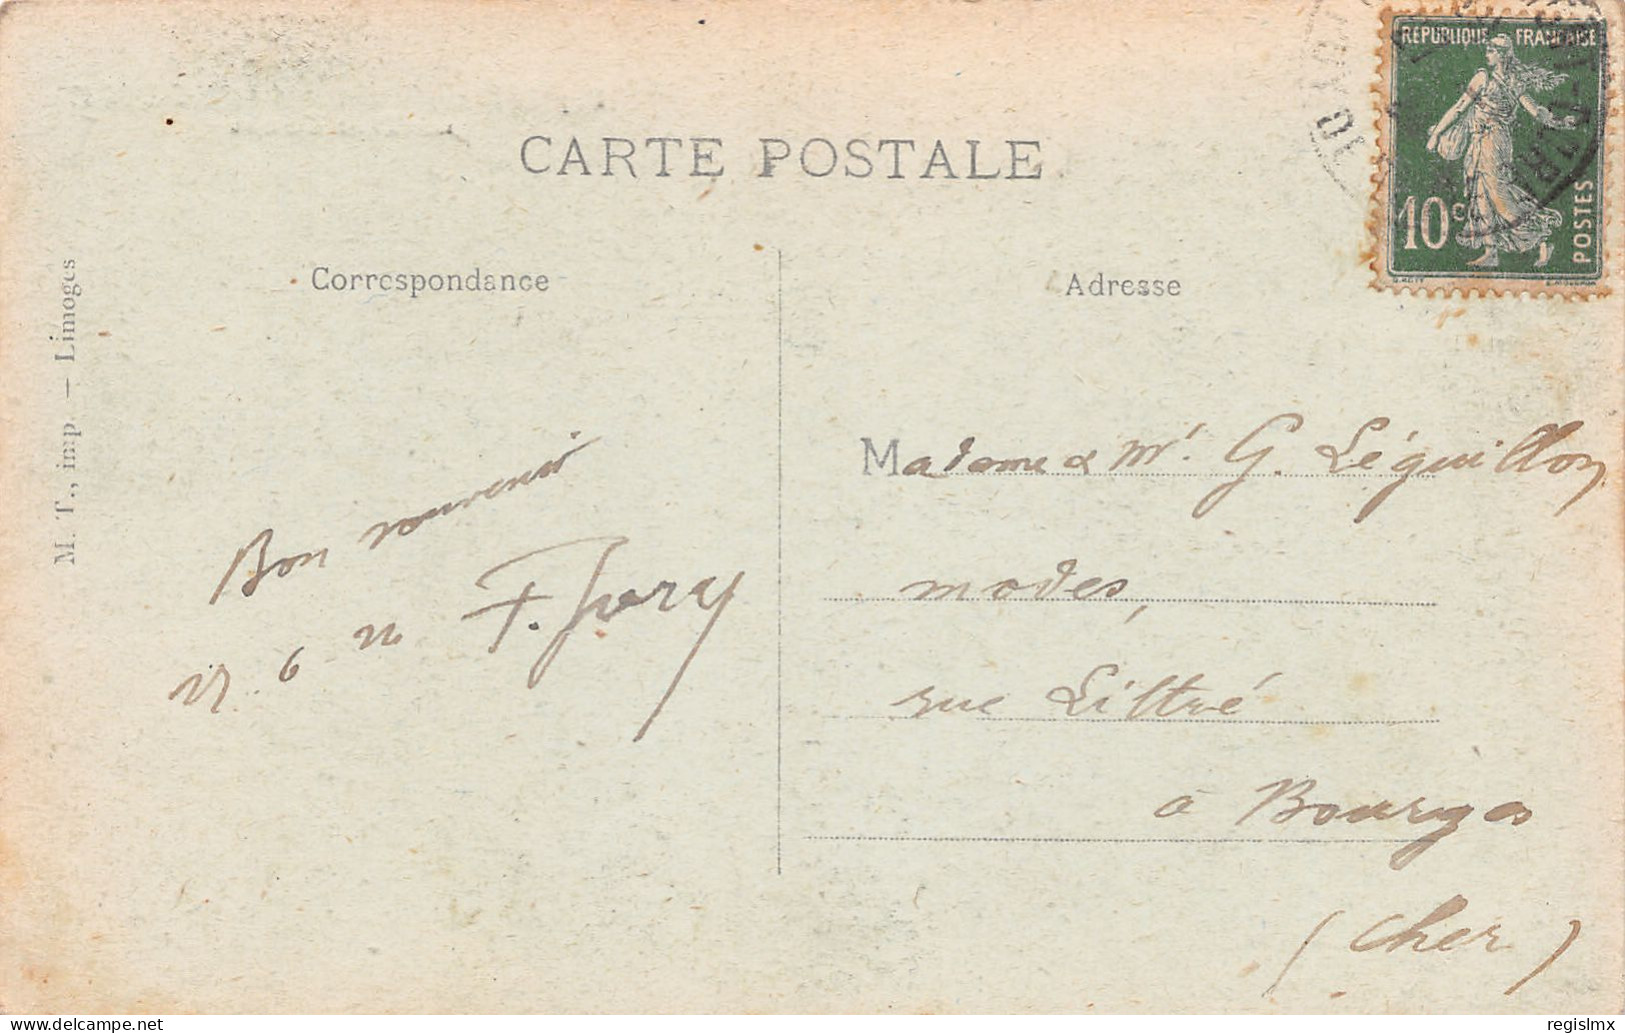 RÉPUBLIQUE FRANÇAISE
10c
POSTES
CARTE POSTALE
Correspondance
Adresse
M. T., imp. — Limoges
Bon souvenir
6
Madame & Mr. G. Léguillon
modes,
rue Littré
à Bourges
(Cher)
delcampe.net
regislmx